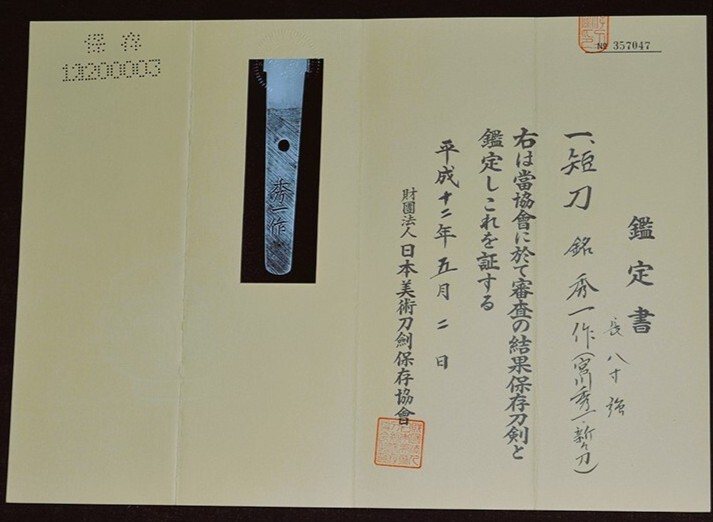 № 357047
鑑定書
一、短刀 銘 秀一作(宮川秀一・新々刀)
長 八寸強
右は當協會に於て審査の結果保存刀剣と
鑑定しこれを証する
平成十二年五月二日
財團法人 日本美術刀剣保存協會
秀一作
保存